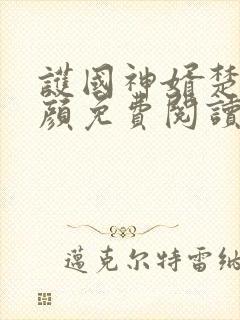 護國神婿楚
顏免費閱讀
邁克尔特雷納